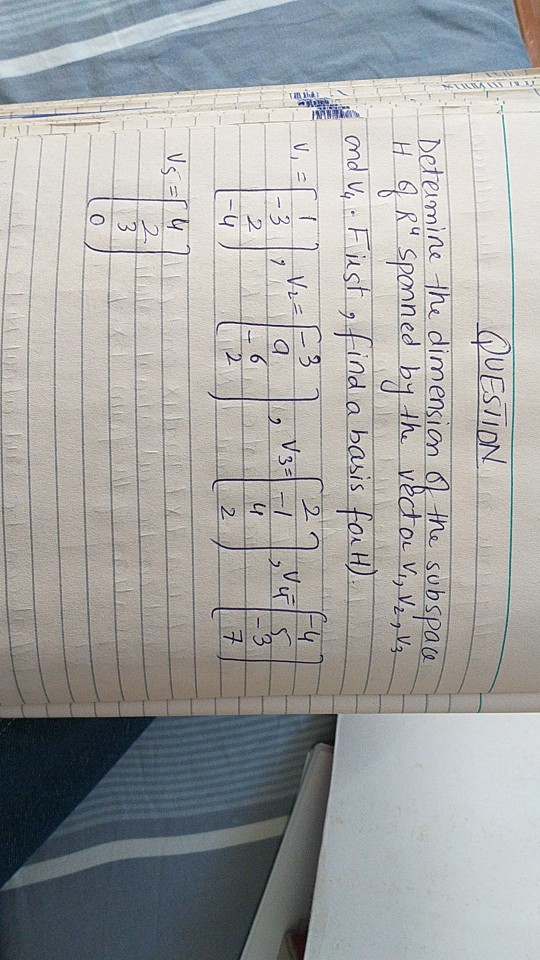 QUESTION
Determine the dimension of the subspace
H of R⁴ spanned by the vector v₁, v₂, v₃
and v₄. First, find a basis for H).
v₁ = [1 -3 2 -4], v₂ = [-3 9 -6 2], v₃ = [2 -1 4 2], v₄ = [-4 5 -3 7]
v₅ = [4 2 3 0]